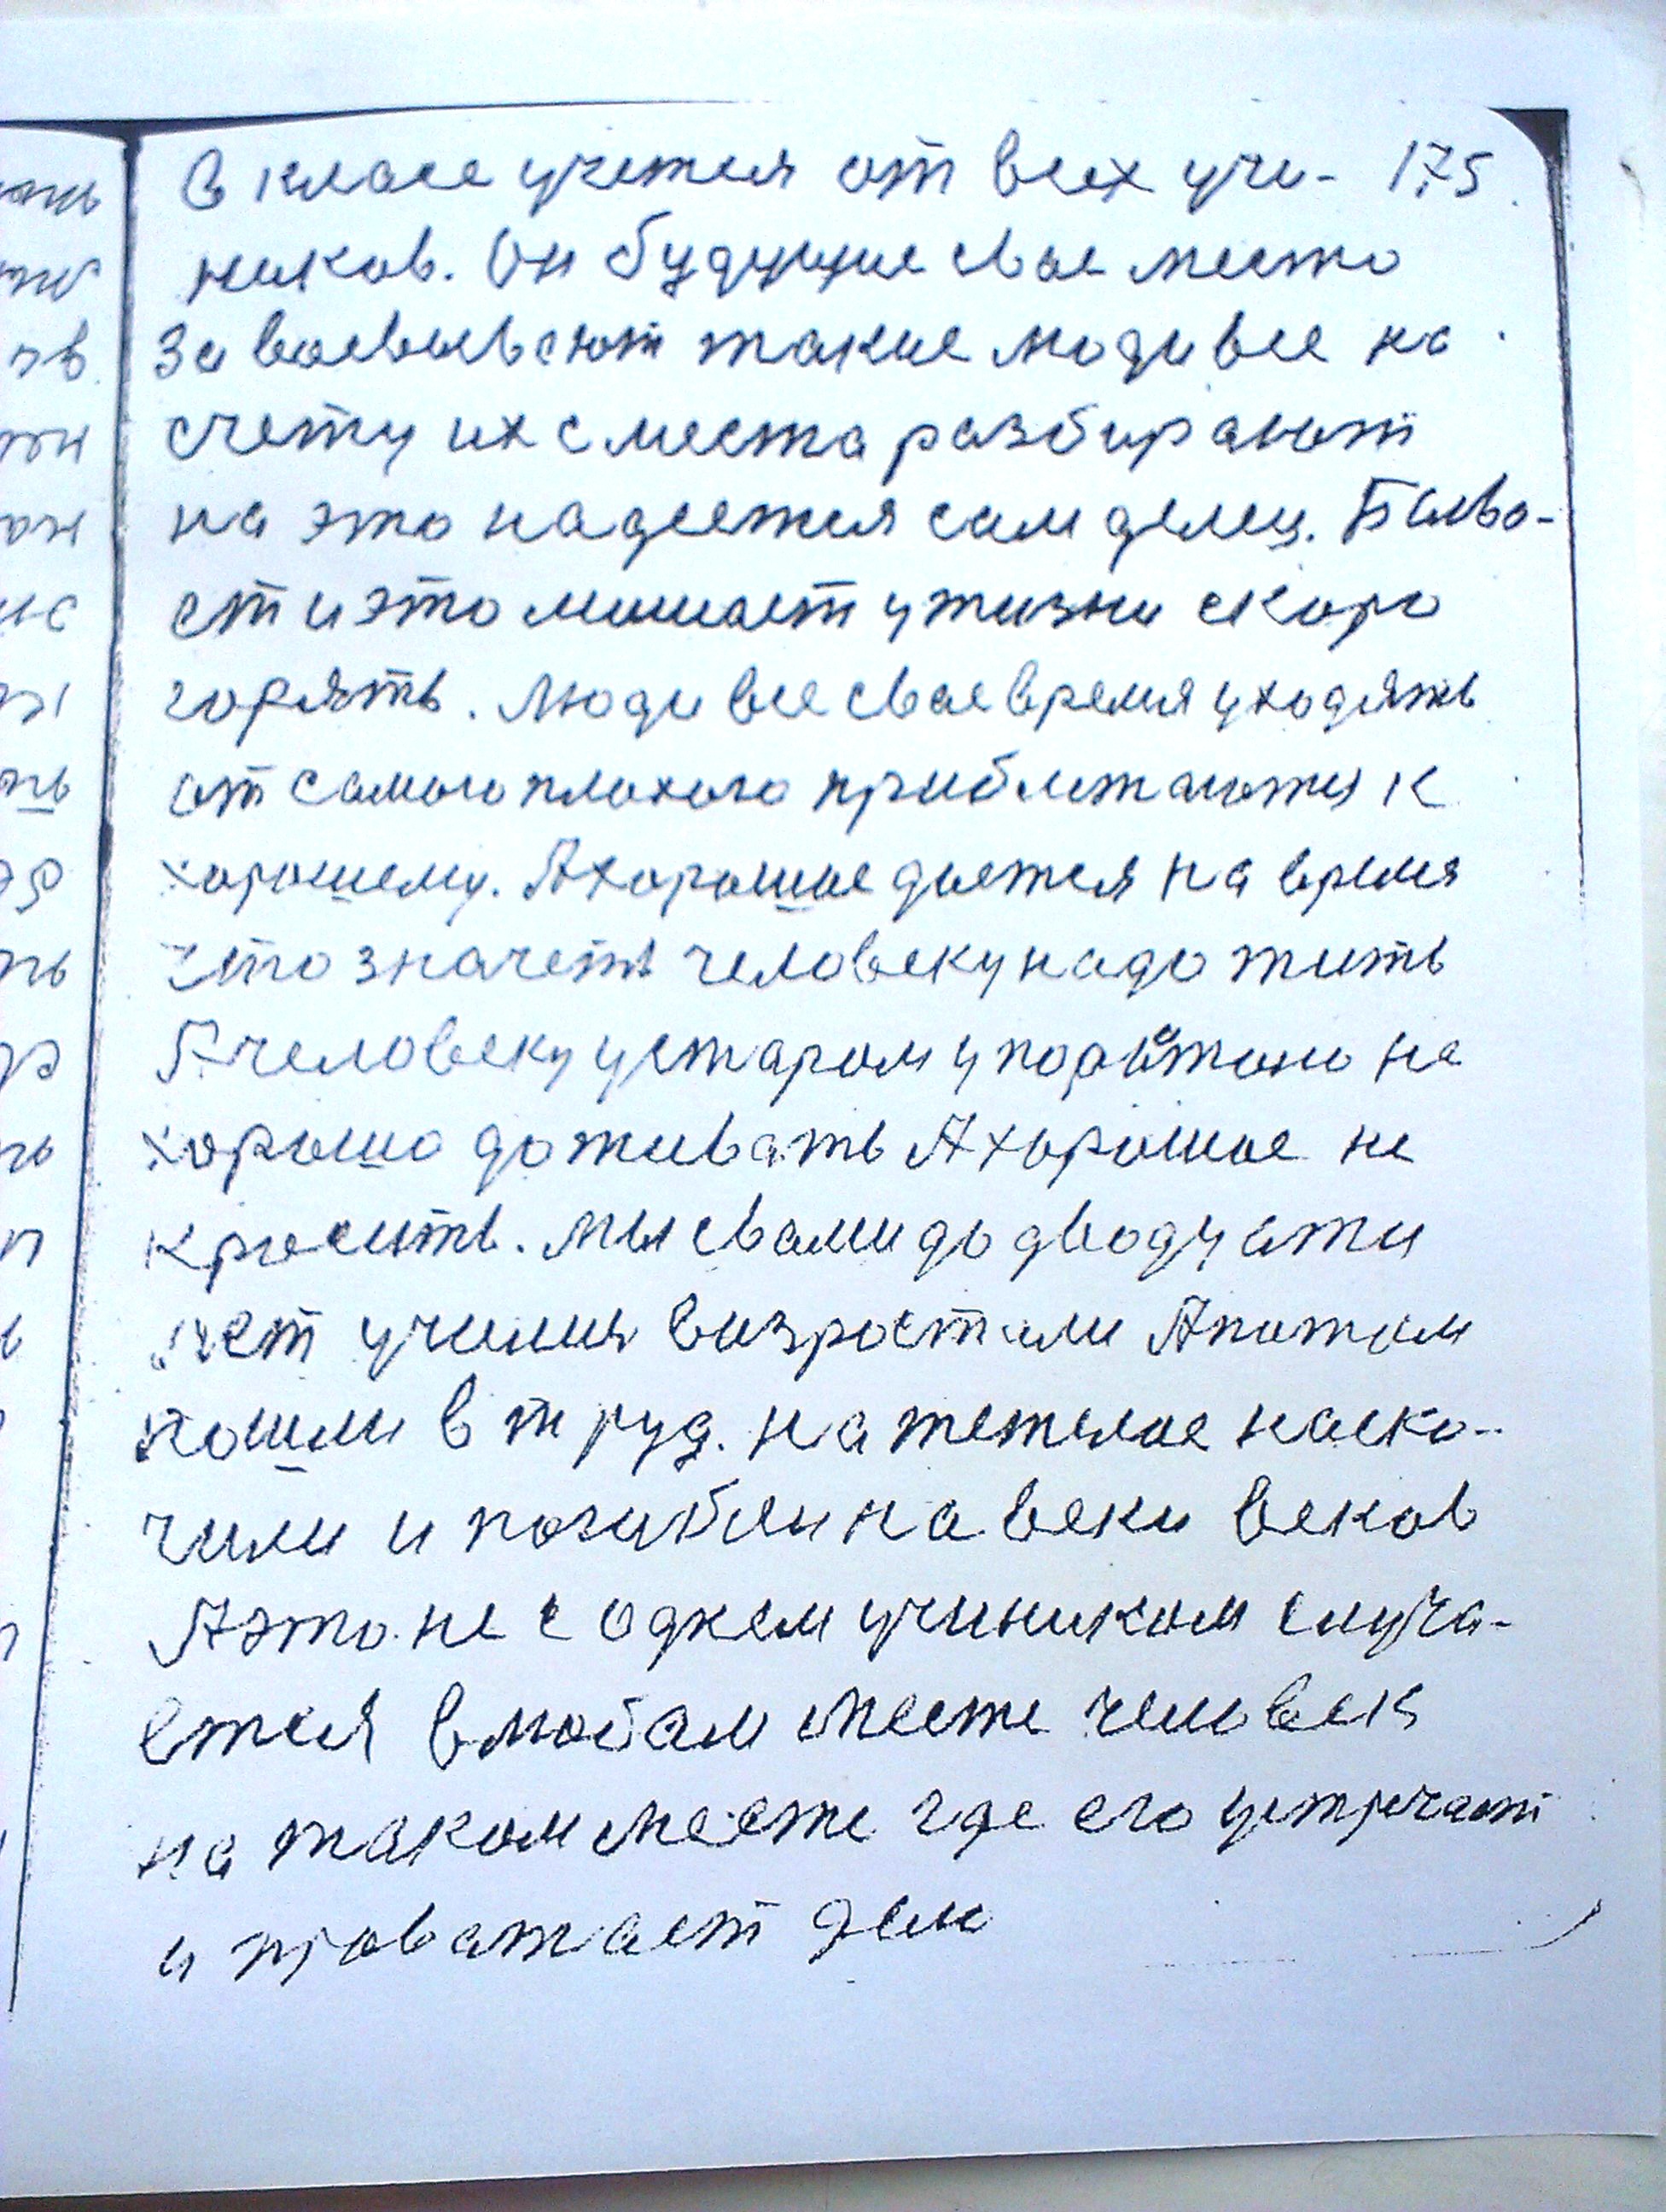 в класе учется от всех уче- 175.
ников. Он будущие свое место
завоевывают такие люди все на
счету их с места разбирают
на это надеется сам делец. Болво-
сти это мишает у жизни скоро
горять. Люди все свое время уходять
от самого плохого приближаются к
хорошему. А хорошое дается на время
что значеть человеку надо жить
А человеку устаром у
хорошо доживать А хорошое не
кросить. мы с вами до дводцати
лет учимся возростали А потом
пошли в труд. на тежелое наско-
чили и погибли на веки веков
А это не с одном учиником случа-
ется в любом месте человек
на таком месте где его устречает
и провожает дем